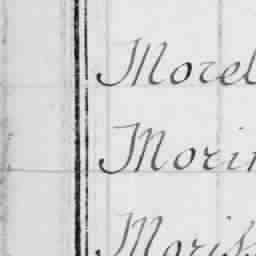 Morel
Morin
Moris